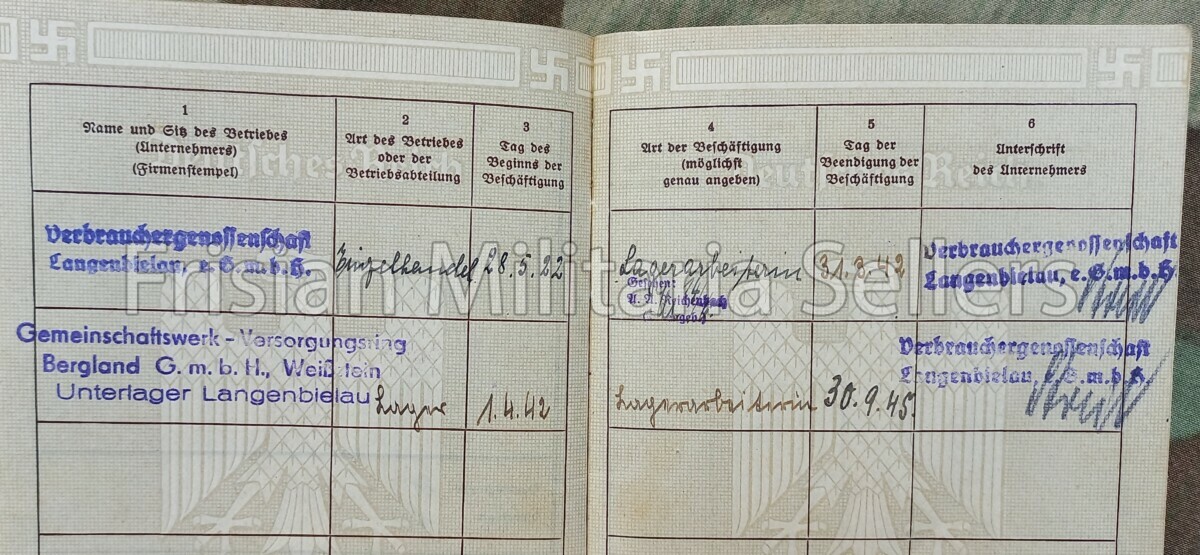 1
Name und Sitz des Betriebes
(Unternehmers)
(Firmenstempel)
2
Art des Betriebes
oder der
Betriebsabteilung
3
Tag des
Beginns der
Beschäftigung
4
Art der Beschäftigung
(möglichst
genau angeben)
5
Tag der
Beendigung der
Beschäftigung
6
Unterschrift
des Unternehmers
Deutsches Reich
Deutsches Reich
Verbrauchergenossenschaft
Langenbielau, e. G. m. b. H.
Einzelhandel
28.5.22
Lagerarbeiterin
Gesehen:
A. A. Reichenbach
31.3.42
Verbrauchergenossenschaft
Langenbielau, e. G. m. b. H.
Frisian Militaria Sellers
Gemeinschaftswerk - Versorgungsring
Bergland G. m. b. H., Weißstein
Unterlager Langenbielau
Lager
1.4.42
Lagerarbeiterin
30.9.45.
Verbrauchergenossenschaft
Langenbielau, e. G. m. b. H.